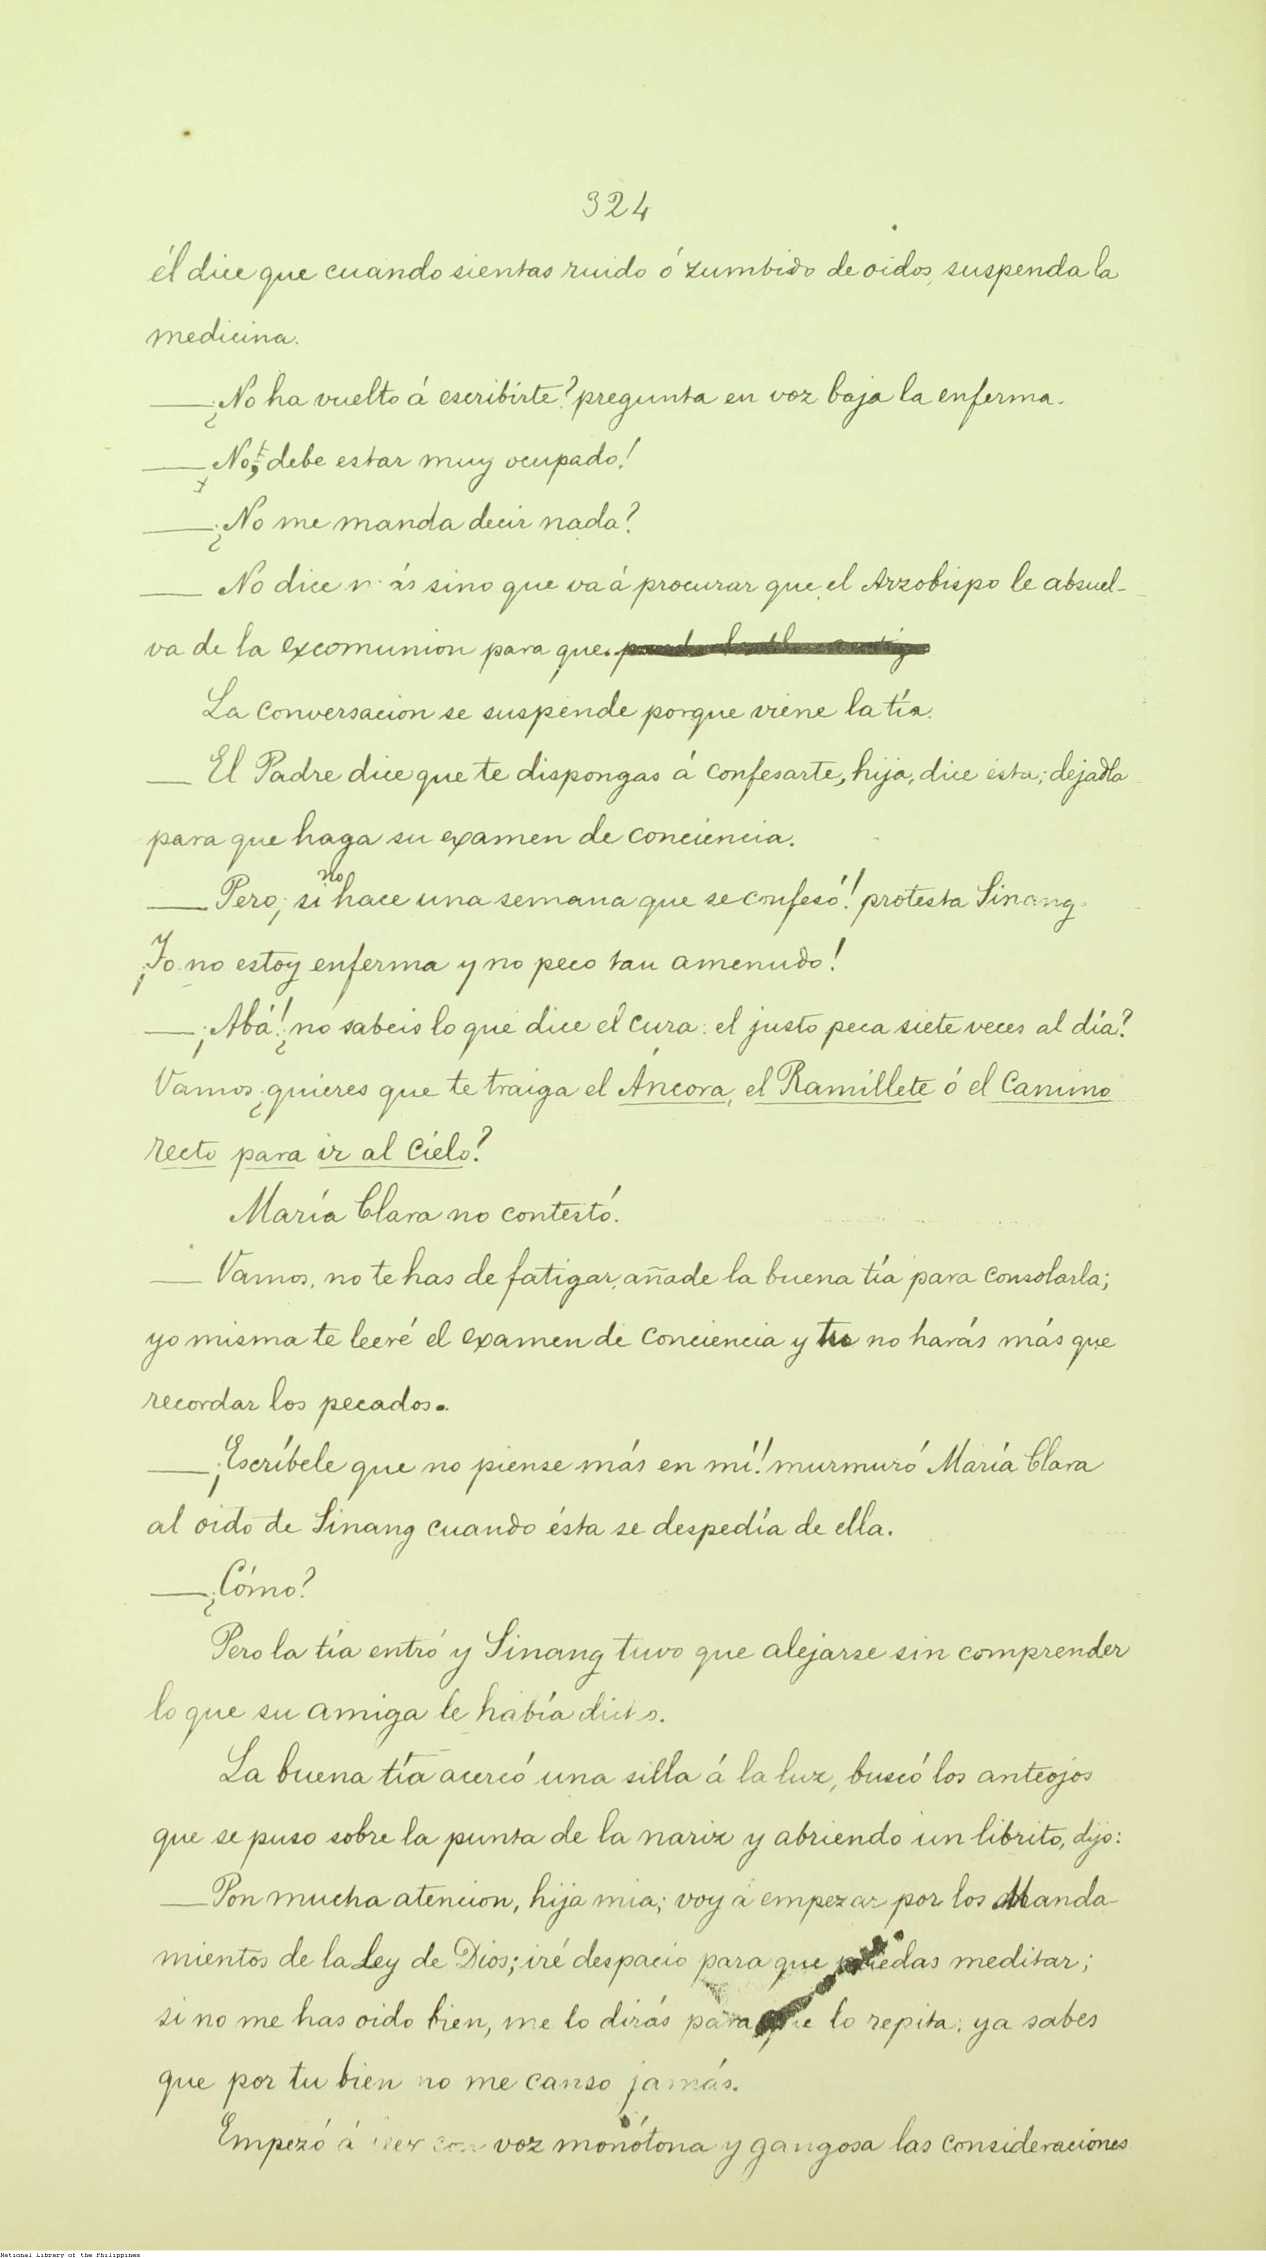 324
él dice que cuando sientas ruido ó zumbido de oidos, suspenda la
medicina.
—¿No ha vuelto á escribirte? pregunta en voz baja la enferma.
—No, debe estar muy ocupado!
—¿No me manda decir nada?
— No dice más sino que va á procurar que el Arzobispo le absuel-
va de la excomunion para que..
La conversacion se suspende porque viene la tía.
— El Padre dice que te dispongas á confesarte, hija, dice ésta; dejadla
para que haga su examen de conciencia.
— Pero, si no hace una semana que se confesó! protesta Sinang.
¡Yo no estoy enferma y no peco tan amenudo!
—¡Abá! ¿no sabeis lo que dice el cura: el justo peca siete veces al día?
Vamos ¿quieres que te traiga el Áncora, el Ramillete ó el Camino
recto para ir al cielo?
María Clara no contestó.
— Vamos, no te has de fatigar, añade la buena tía para consolarla;
yo misma te leeré el examen de conciencia y tu no harás más que
recordar los pecados.
—¡Escríbele que no piense más en mí! murmuró María Clara
al oido de Sinang cuando ésta se despedía de ella.
—¿Cómo?
Pero la tía entró y Sinang tuvo que alejarse sin comprender
lo que su amiga le había dicho.
La buena tía acercó una silla á la luz, buscó los anteojos
que se puso sobre la punta de la nariz y abriendo un librito, dijo:
— Pon mucha atencion, hija mia; voy á empezar por los Manda
mientos de la Ley de Dios; iré despacio para que puedas meditar;
si no me has oido bien, me lo dirás para que lo repita; ya sabes
que por tu bien no me canso jamás.
Empezó á leer con voz monótona y gangosa las consideraciones
National Library of the Philippines